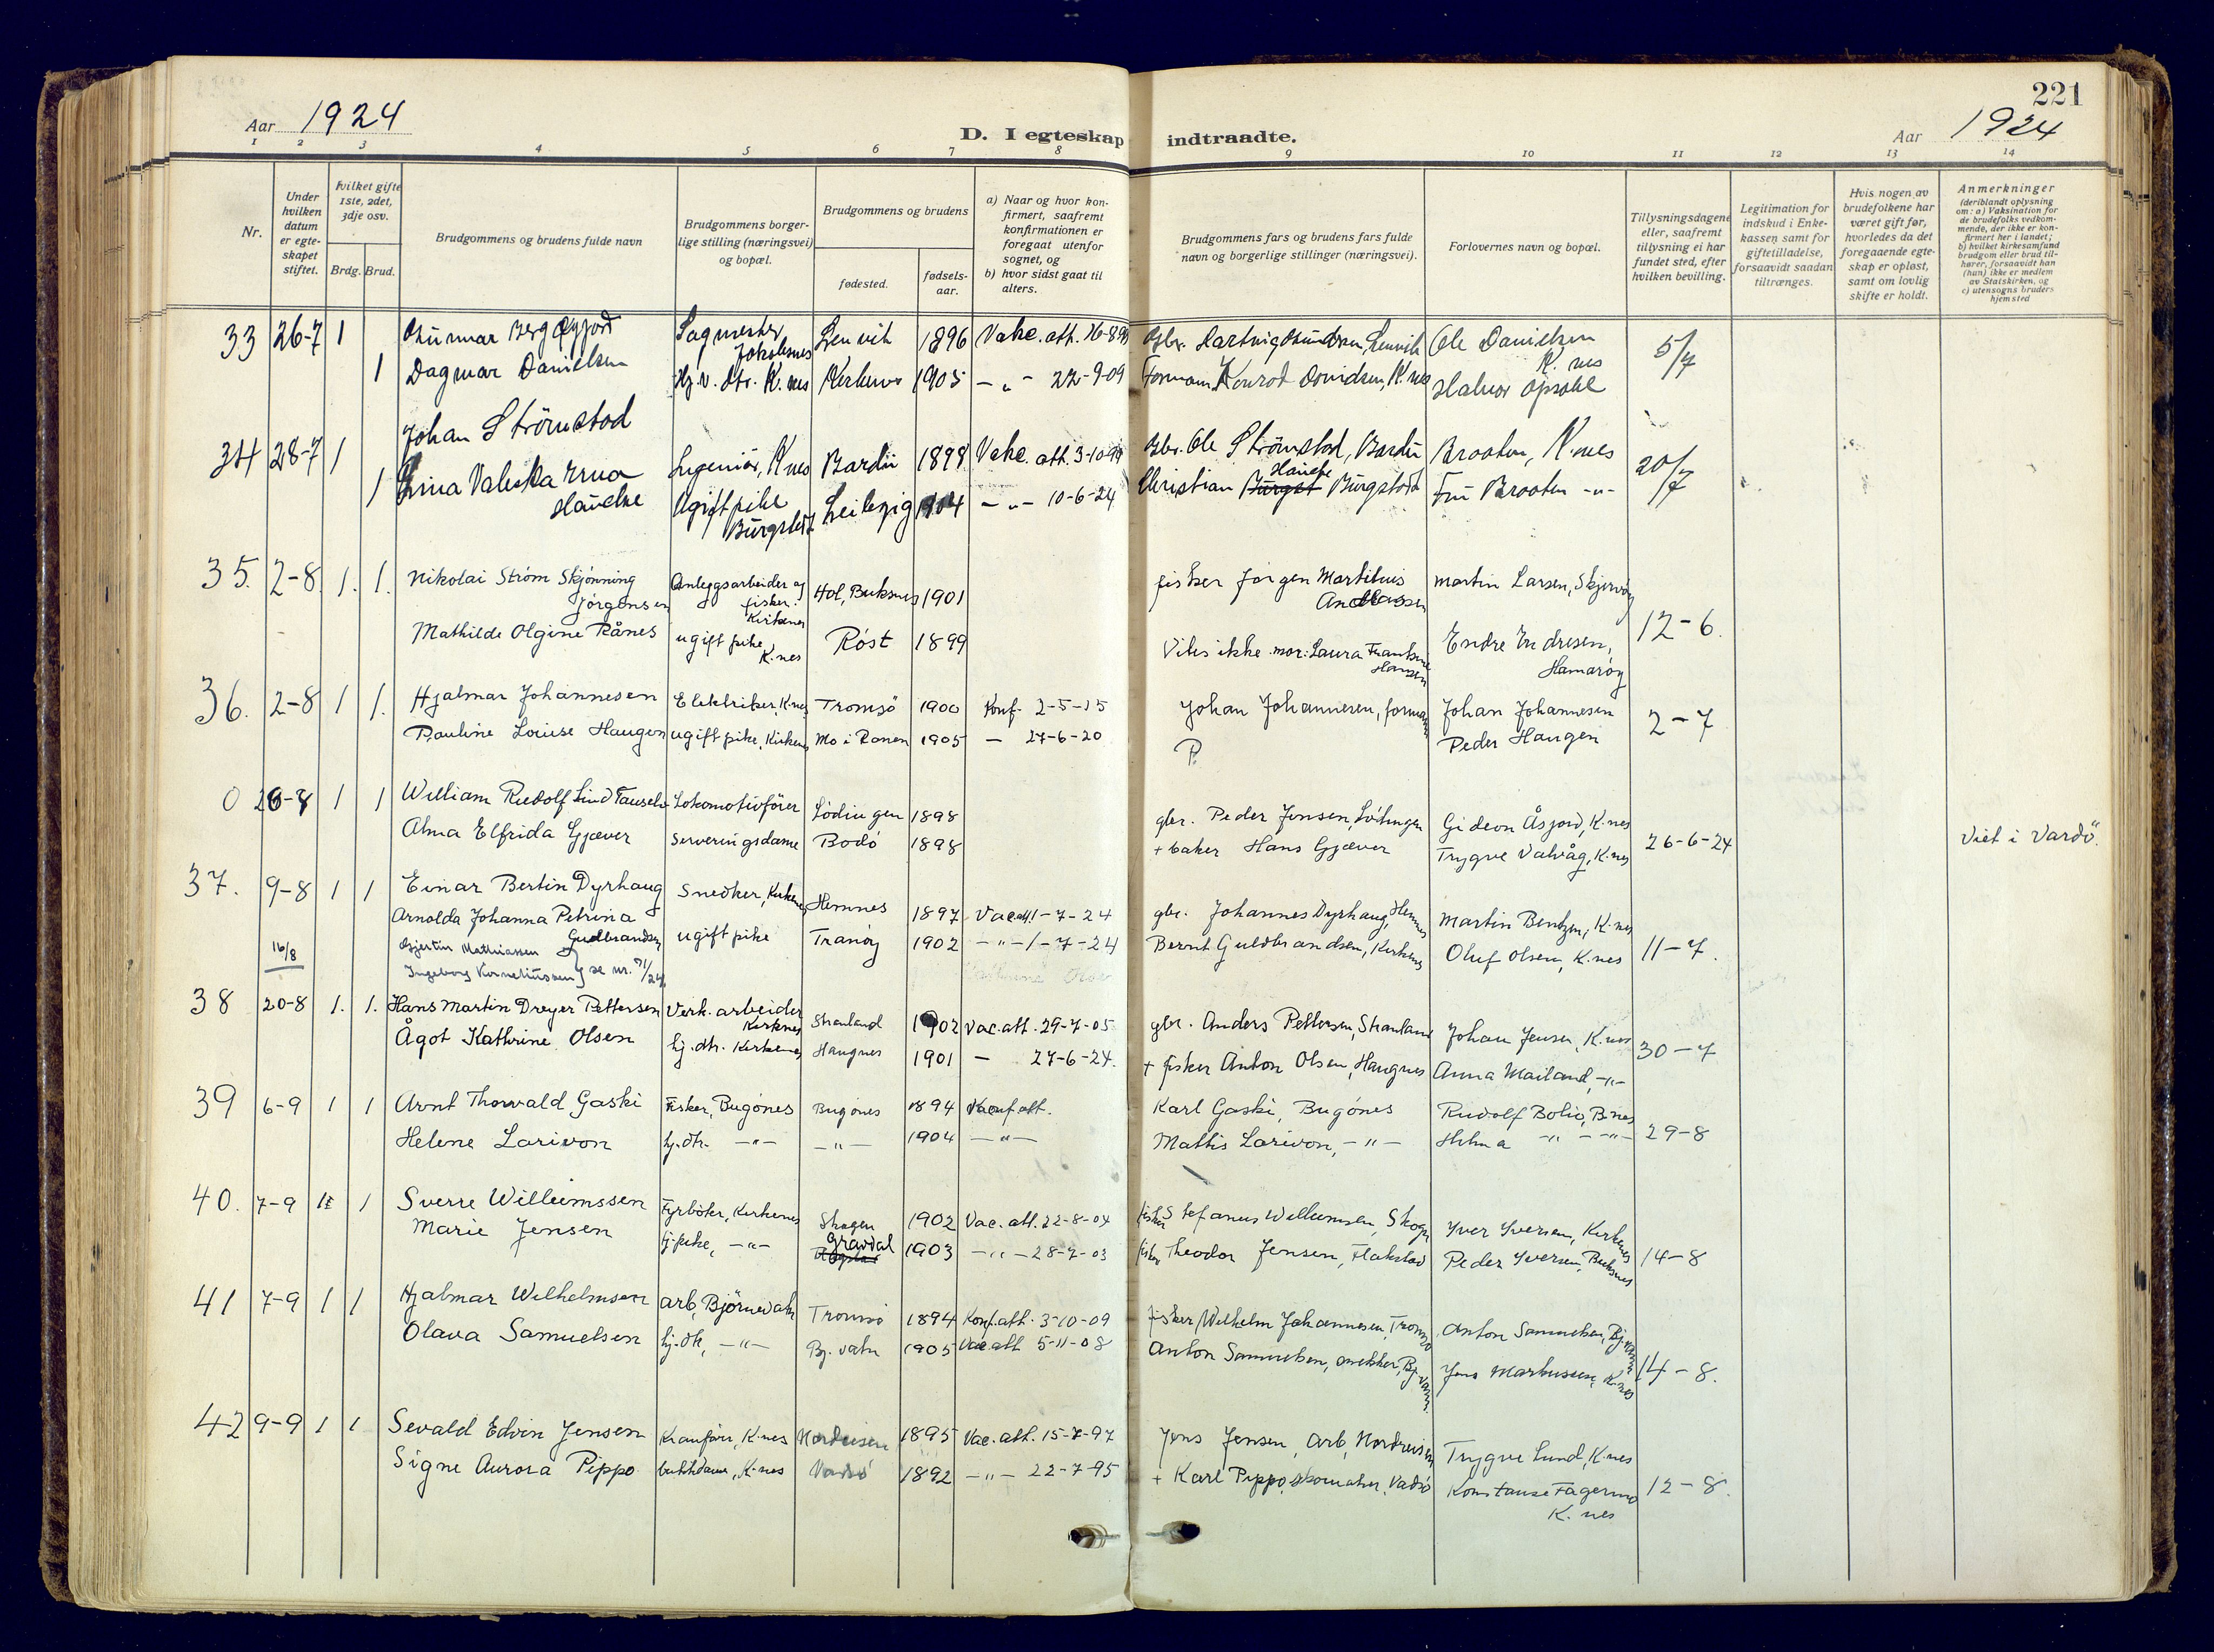 221
Aar 1924
D. I egteskap indtraadte.
Aar 1924
1 2 3 4 5 6 7 8 9 10 11 12 13 14
Nr.
Under hvilken datum er egteskapet stiftet.
Hvilket gifte 1ste, 2det, 3dje osv.
Brdg. Brud.
Brudgommens og brudens fulde navn
Brudgommens borgerlige stilling (næringsvei) og bopæl.
Brudgommens og brudens
fødested.
fødselsaar.
a) Naar og hvor konfirmert, saafremt konfirmationen er foregaat utenfor sognet, og
b) hvor sidst gaat til alters.
Brudgommens fars og brudens fars fulde navn og borgerlige stillinger (næringsvei).
Forlovernes navn og bopæl.
Tillysningsdagene eller, saafremt tillysning ei har fundet sted, efter hvilken bevilling.
Legitimation for indskud i Enkekassen samt for giftetilladelse, forsaavidt saadan tiltrænges.
Hvis nogen av brudefolkene har været gift før, hvorledes da det foregaaende egteskap er opløst, samt om lovlig skifte er holdt.
Anmerkninger
(deriblandt oplysning om: a) Vaksination for de brudefolks vedkommende, der ikke er konfirmert her i landet;
b) hvilket kirkesamfund brudgom eller brud tilhører, forsaavidt han (hun) ikke er medlem av Statskirken, og
c) utensogns bruders hjemsted
33 26-7 1 Lenvik 1896 Ole Danielsen 5/7
1 Dagmar Danielsen K.nes Kirkenes 1905 - " - 22-9-09 K.nes
34 28-7 1 Johan Strömstad Ingeniör, K.nes Bardu 1898 gbr. Ole Strömstad, Bardu Braaten, K.nes 20/7
1 Valeska Erna Ugift pike Leibzig 1904 - " - 10-6-24 Christian Fru Braaten - " -
35. 2-8. 1. 1. Nikolai Strøm Skjønning Jørgensen Anleggsarbeider og fisker. Kirkenes Hol, Buksnes 1901 fisker Jørgen Martilius Martin Larsen, Skjervøy 12-6.
Mathilde Olgine Rånes ugift pike, K.nes Røst 1899 Vites ikke. mor: Laura Hansen Endre Endresen, Hamarøy
36. 2-8 1 1. Hjalmar Johannesen Elektriker, K.nes Tromsö 1900 Konf. 2-5-15 Johan Johannesen, formann Johan Johannesen 2-7
Pauline Louise Haugen ugift pike, Kirkenes Mo i Ranen 1905 - 27-6-20 P. Peder Haugen
0 1 1 William Rudolf Lind Lokomotivfører Lødingen 1898 gbr. Peder Jensen, Lødingen Gideon Åsjord, K.nes 26-6-24 Viet i Vardö.
Alma Elfrida Gjæver Serveringsdame Bodø 1898 + baker Hans Gjæver Trygve Valvåg, K.nes
37. 9-8 1 1 Einar Bertin Dyrhaug Snedker, Kirkenes Hemnes 1897 Vac.att. 1-7-24 gbr. Johannes Dyrhaug, Hemnes Martin Bentzen, K.nes 11-7.
Arnolda Johanna Petrina Gudbrandsen ugift pike Tranøy 1902 - " - 1-7-24 Bernt Guldbrandsen, Kirkenes Oluf Olsen, K.nes
16/8 Mathiassen
Ingeborg Korneliussen } se nr. 31/24
38 20-8 1. 1. Hans Martin Dreyer Pettersen Verk.arbeider Kirkenes Stranland 1902 Vac.att. 29-7-05 gbr. Anders Pettersen, Stranland Johan Jensen, K.nes 30-7
Ågot Kathrine Olsen hj. dtr. Kirkenes Haugnes 1901 - 27-6-24. + fisker Anton Olsen, Haugnes Anna Mailand, - " -
39 6-9 1 1 Arnt Thorvald Gaski Fisker, Bugönes Bugönes 1894 Karl Gaski, Bugönes Rudolf B.nes 29-8
Helene Larivon hj.dtr. - " - - " - 1904 - " - Mattis Larivon, - " - Helma - " - - " -
40. 7-9 1 Sverre Willumssen Fyrböter, Kirkenes Skogen 1902 Vac.att. 22-8-04 fisker Stefanus Willumsen, Skogen Yver Yversen, Kirkenes 14-8
Marie Jensen hj.pike, - " - Gravdal 1903 - " - 28-7-03 fisker Theodor Jensen, Flakstad Peder Yversen, Buksnes
41 7-9 1 1 Hjalmar Wilhelmsen arb, Björnevatn Tromsö 1894 Konf.att. 3-10-09 fisker, Wilhelm Johannesen, Tromsö Anton Samuelsen, Bj.vatn 14-8.
Olava Samuelsen hj.dtr, - " - Bj.vatn 1905 Vac.att 5-11-08 Anton Samuelsen, snekker, Bj.vatn. Jens Markussen, K.nes
42 9-9 1 1 Sevald Edvin Jensen Kranfører, K.nes Nordreisen 1895 Vac.att. 15-7-97 Jens Jensen, arb, Nordreisen Trygve Lund, K.nes 12-8.
Signe Aurora Pippo butikdame, K.nes Vadsø 1892 - " - 22-7-95 + Karl Pippo, skomaker, Vadsö Konstanse Fagermo K.nes